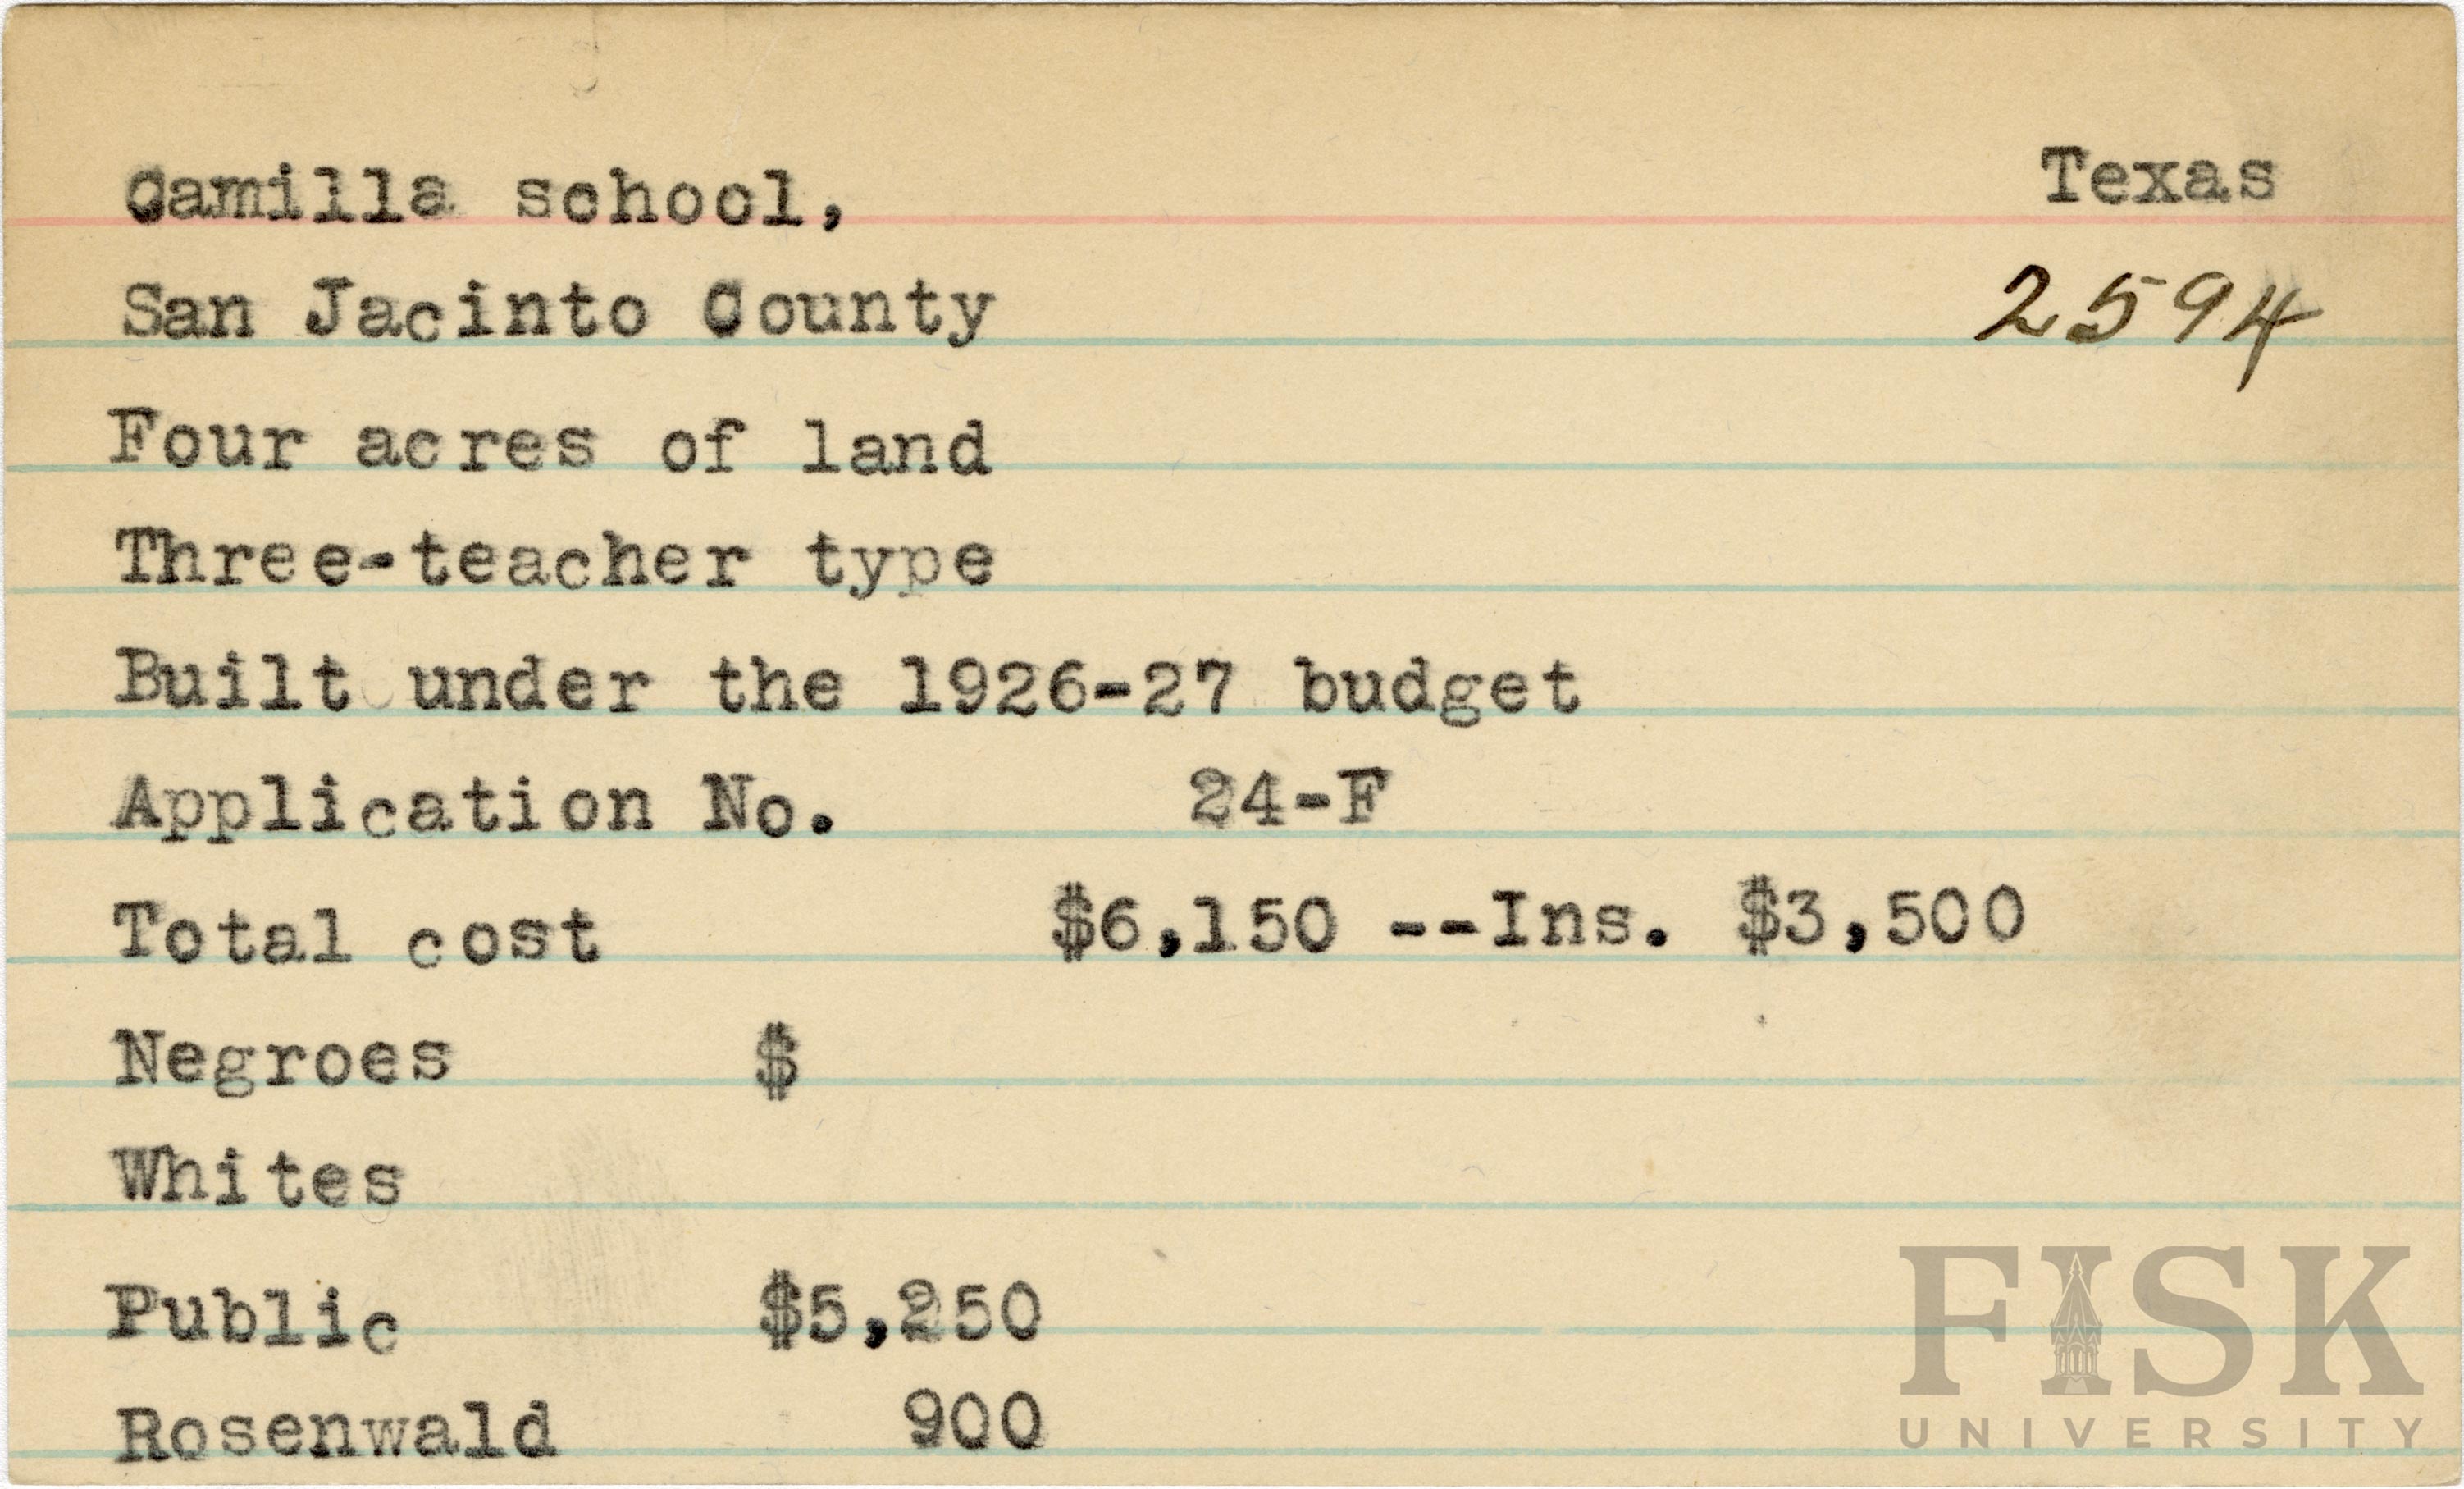 Camilla school, Texas
San Jacinto County 2594
Four acres of land
Three-teacher type
Built under the 1926-27 budget
Application No. 24-F
Total cost $6,150 --Ins. $3,500
Negroes $
Whites
Public $5,250
Rosenwald 900
FISK
UNIVERSITY